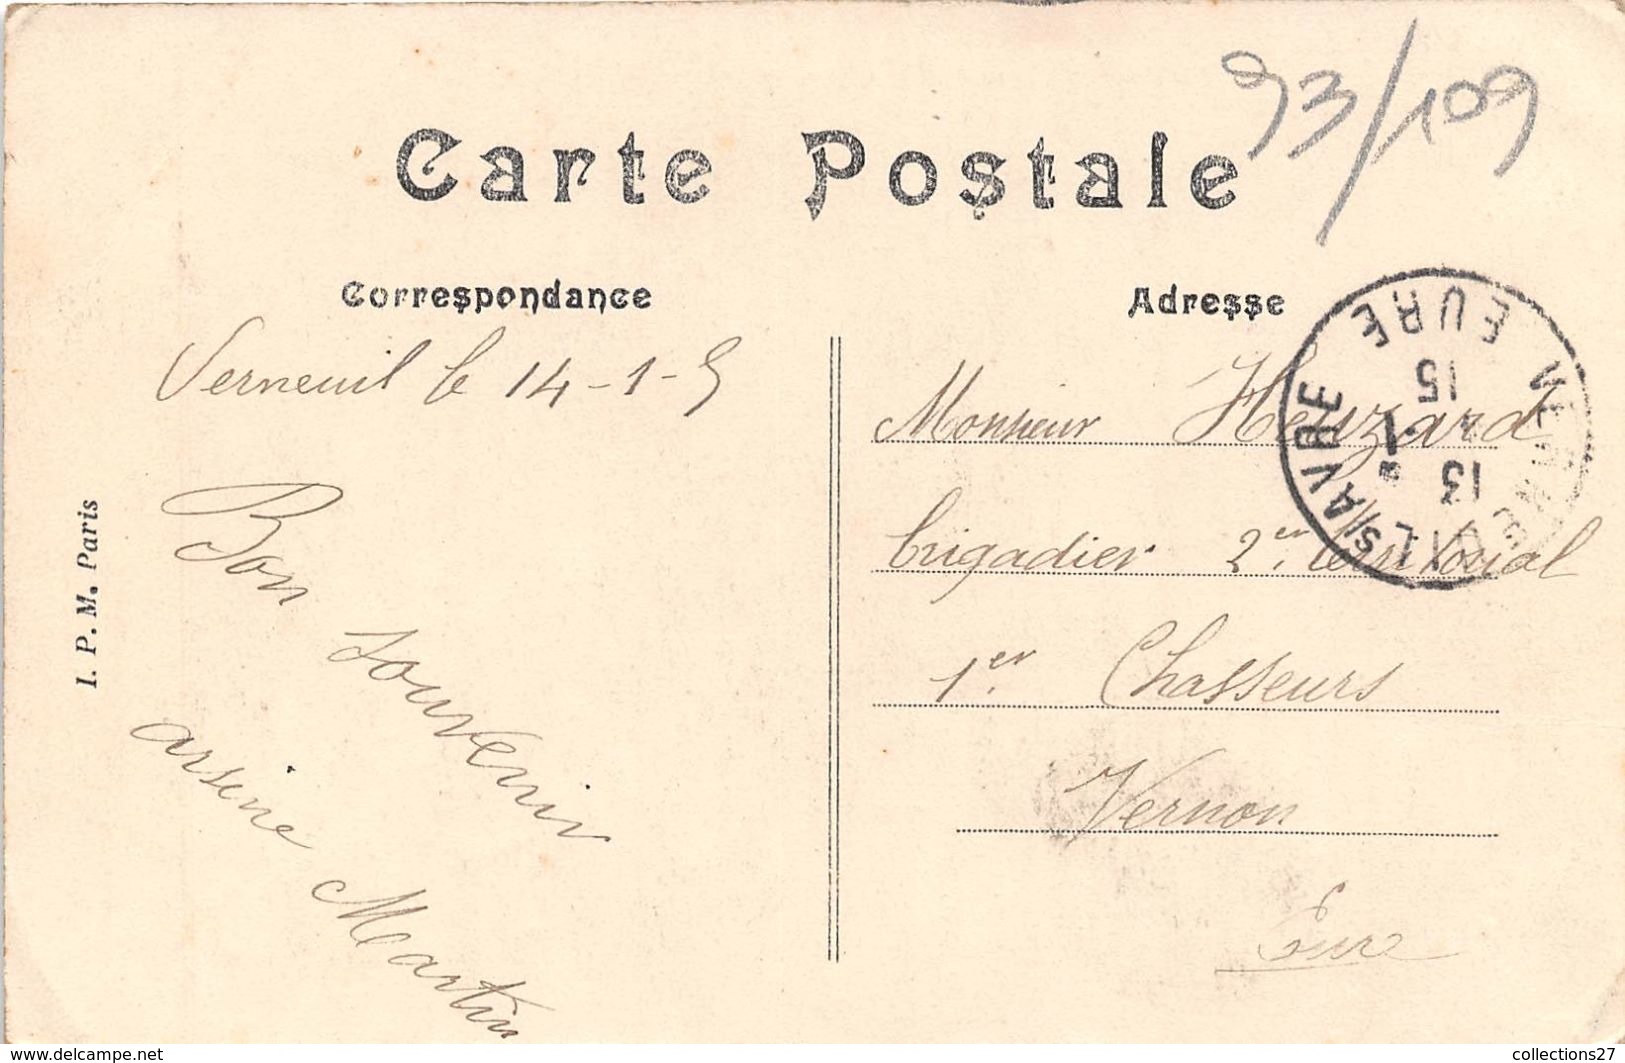 93/109
Carte Postale
Correspondance
Adresse
Verneuil le 14-1-5
Bon
souvenir
arsene Martin
I. P. M. Paris
Monsieur Heuzard
brigadier 2er territorial
1er Chasseurs
Vernon
Eure
VERNEUIL S/AVRE
EURE
13
15
www.delcampe.net
collections27